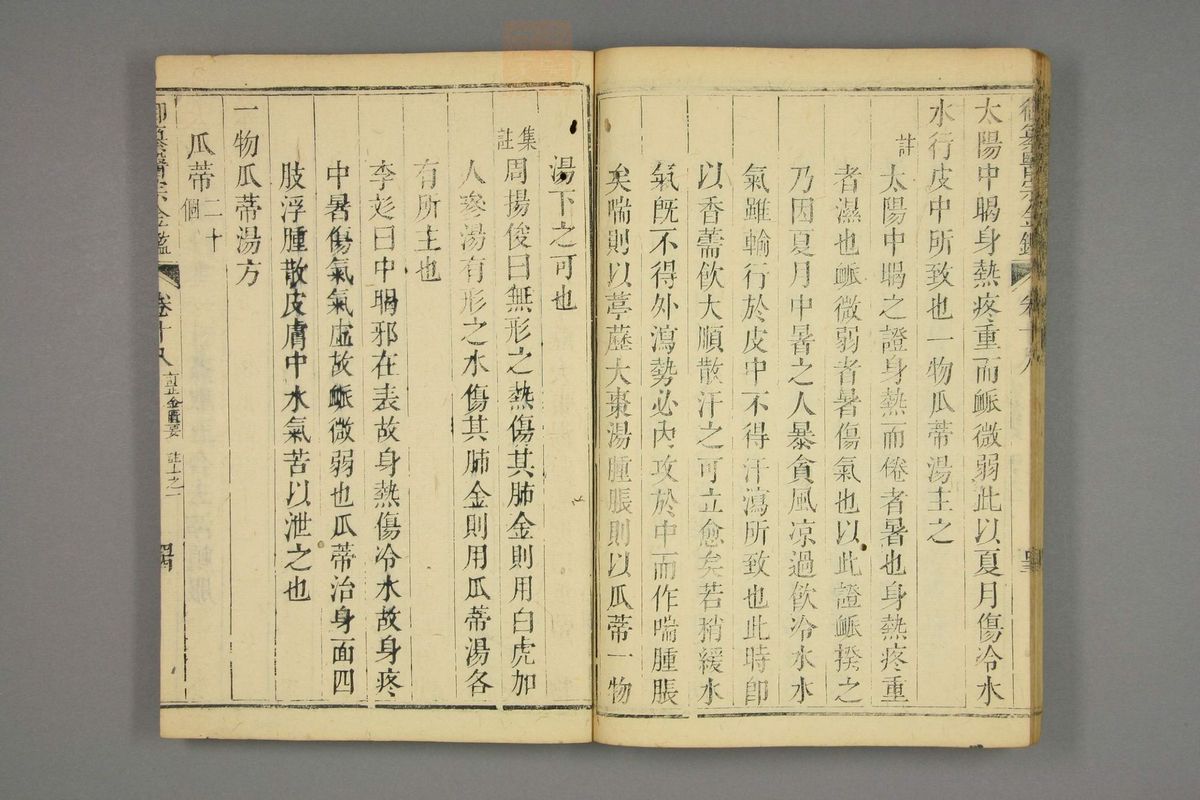 御纂醫宗金鑑 卷十八
太陽中暍身熱疼重而脈微弱此以夏月傷冷水
水行皮中所致也一物瓜蒂湯主之
註
太陽中暍之證身熱而倦者暑也身熱疼重
者濕也脈微弱者暑傷氣也以此證脈揆之
乃因夏月中暑之人暴貪風凉過飲冷水水
氣雖輸行於皮中不得汗瀉所致也此時卽
以香薷飲大順散汗之可立愈矣若稍緩水
氣旣不得外瀉勢必內攻於中而作喘腫脹
矣喘則以葶藶大棗湯腫脹則以瓜蒂一物
湯下之可也
集註
周揚俊曰無形之熱傷其肺金則用白虎加
人參湯有形之水傷其肺金則用瓜蒂湯各
有所主也
李彣曰中暍邪在表故身熱傷冷水故身疼
中暑傷氣氣虛故脈微弱也瓜蒂治身面四
肢浮腫散皮膚中水氣苦以泄之也
一物瓜蒂湯方
瓜蒂二十個
御纂醫宗金鑑 卷十八 訂正金匱要 註上之一